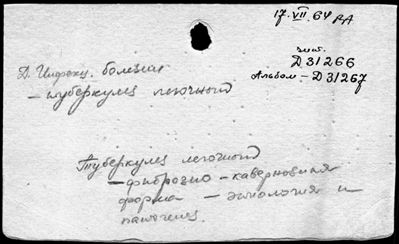 17.VII.64
Д 31266
Альбом – Д 31267
Д. Инфекц. болезни
– туберкулез легочной
Туберкулез легочной
– фиброзно – каверновная
форма – этиология и
патогенез.